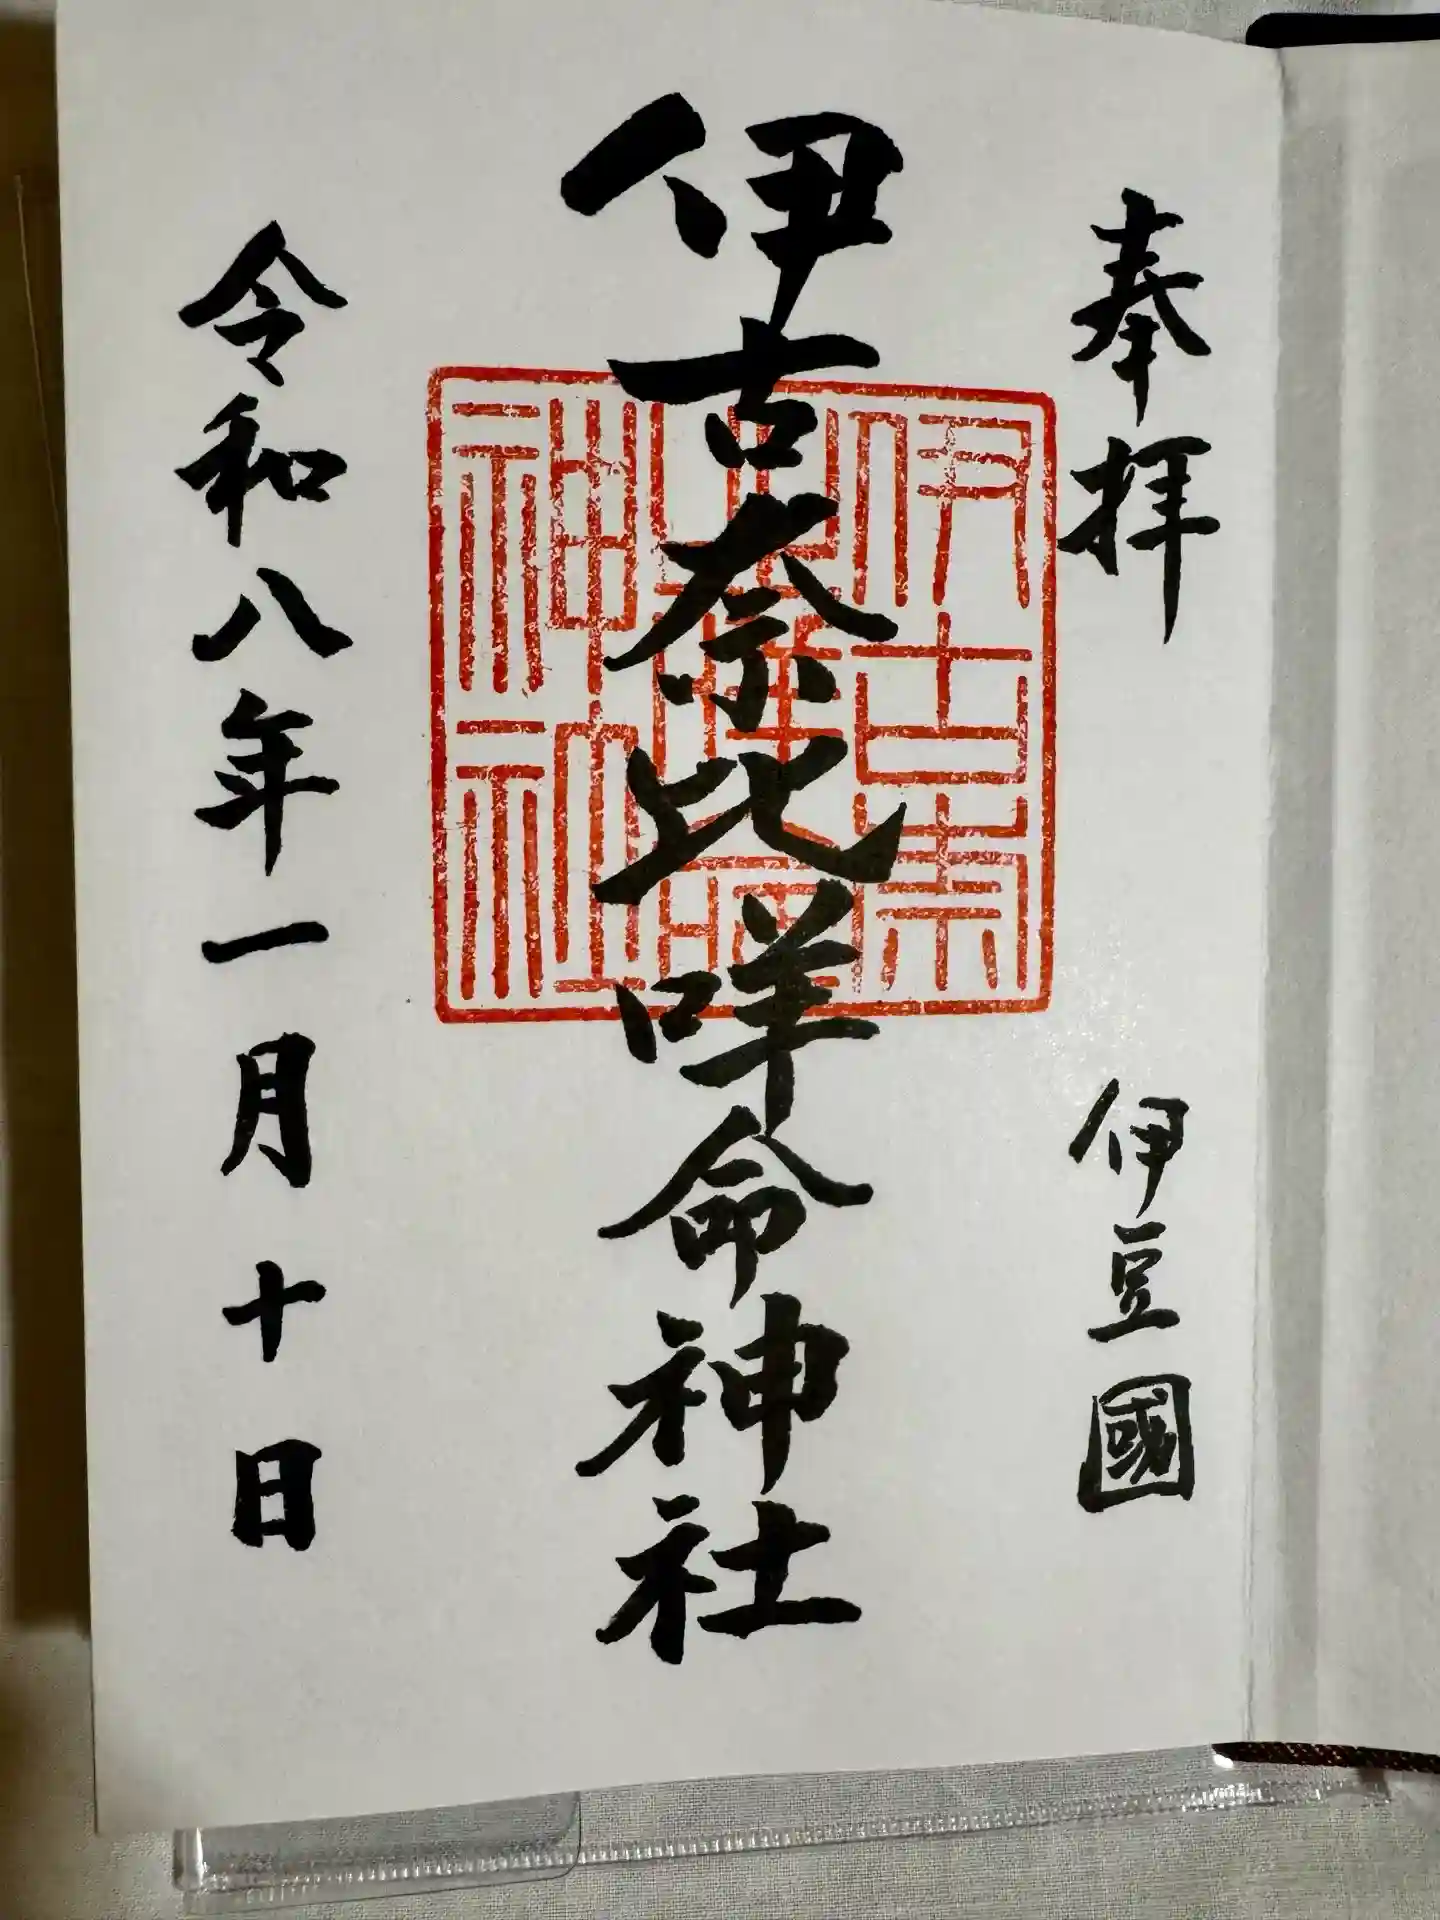 奉拝
伊豆國
伊古奈比咩命神社
伊古奈
比咩命
神社
令和八年一月十日